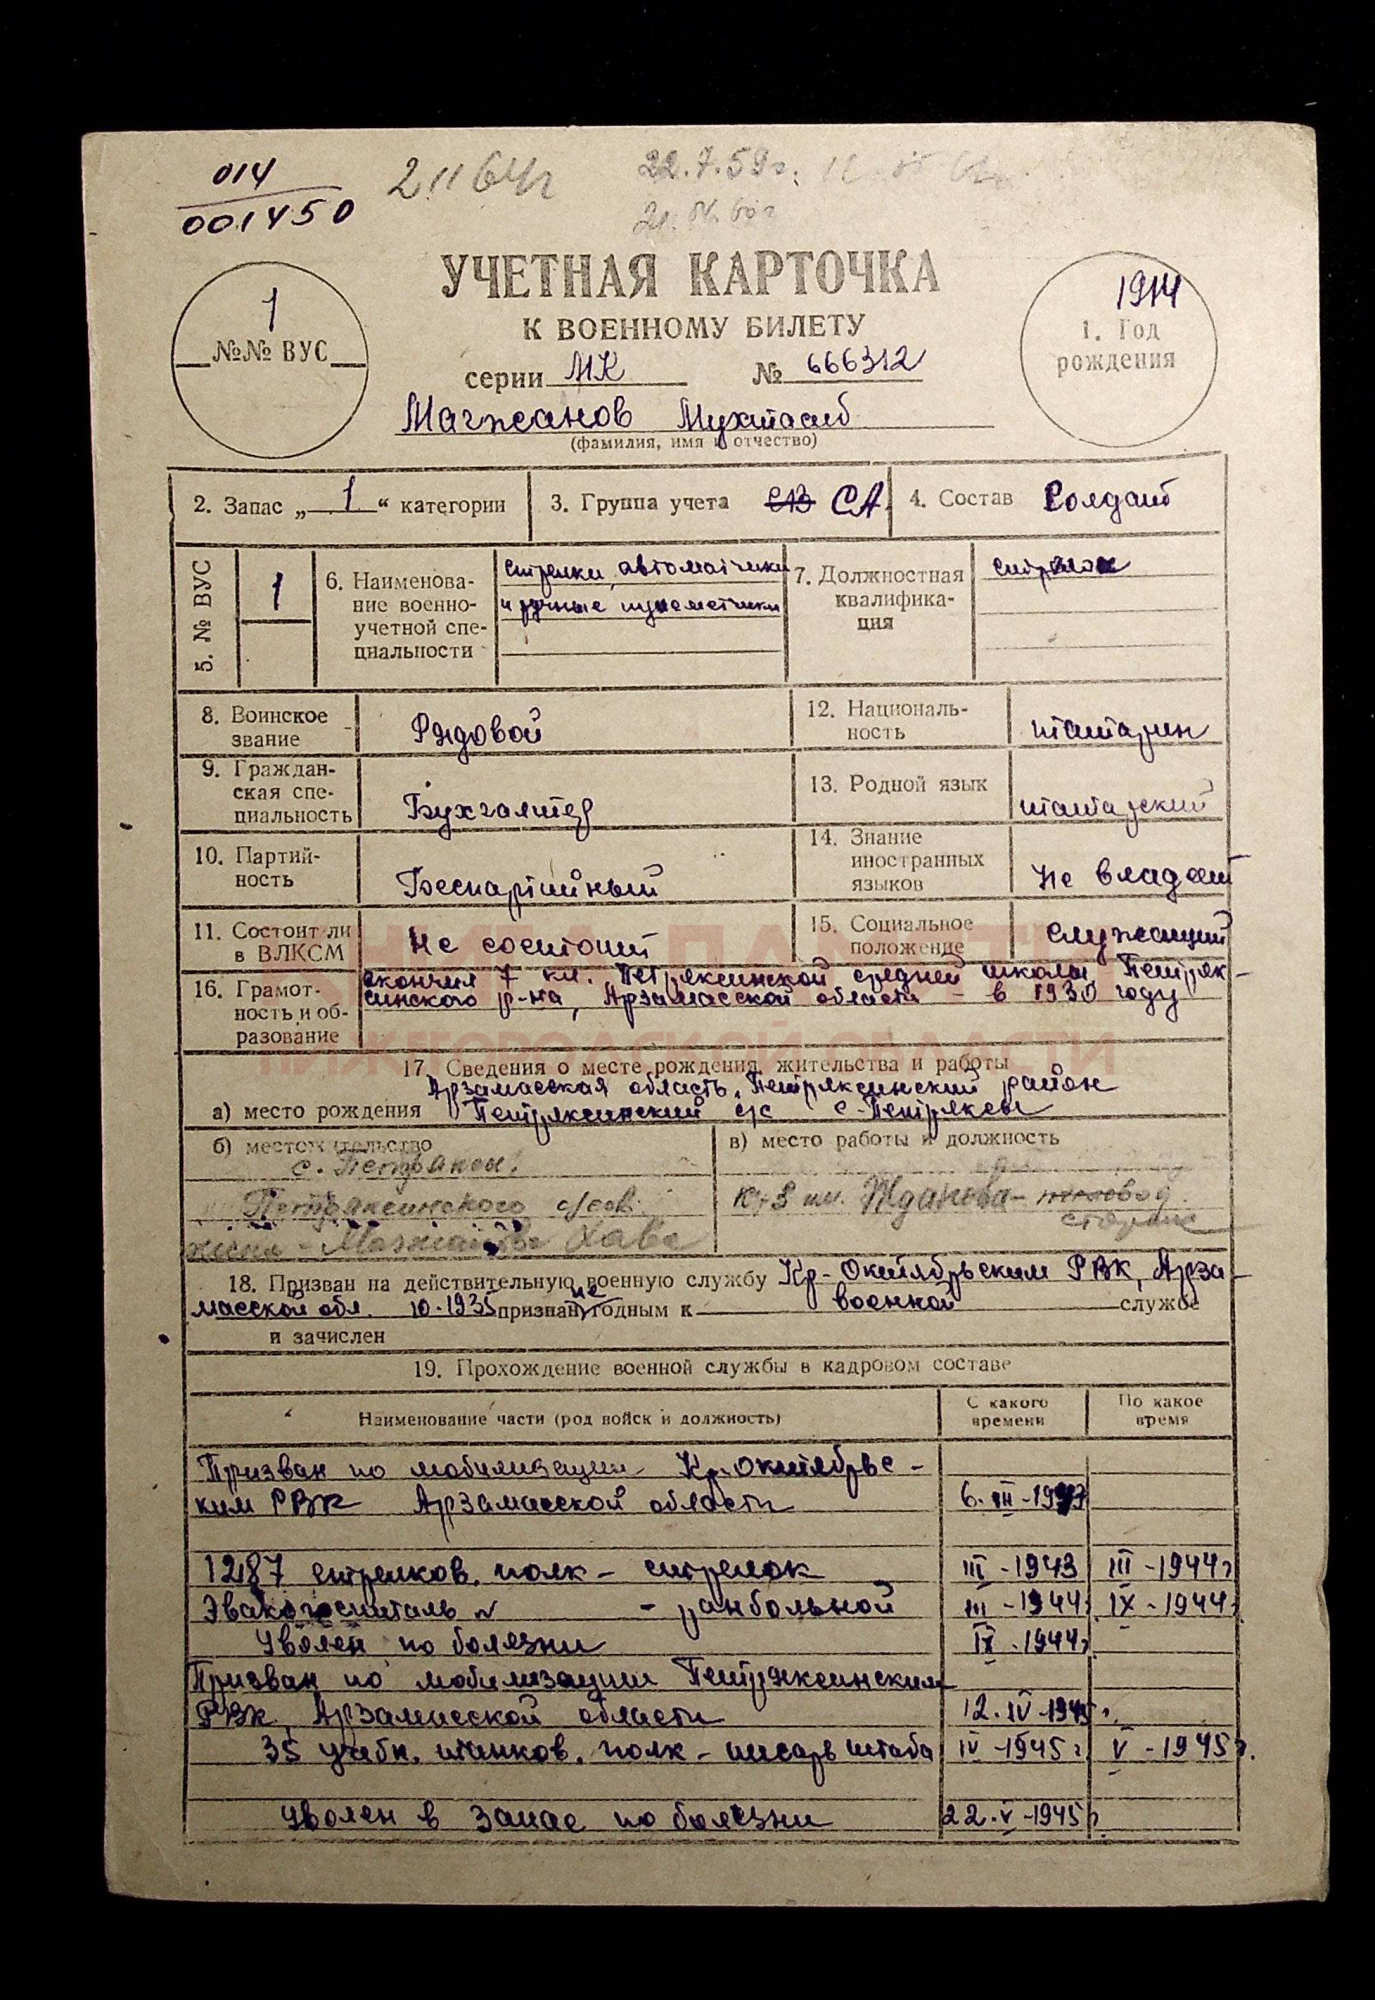 014
001450
2 11 64г
22.7.59г.
УЧЕТНАЯ КАРТОЧКА
К ВОЕННОМУ БИЛЕТУ
серии МК № 666312
1
№№ ВУС
1914
1. Год
рождения
Магжанов Мухтасиб
(фамилия, имя и отчество)
2. Запас „ 1 “ категории
3. Группа учета СВ СА
4. Состав Солдат
5. № ВУС
1
6. Наименова-
ние военно-
учетной спе-
циальности
стрелки, автоматчики
и ручные пулеметчики
7. Должностная
квалифика-
ция
стрелок
8. Воинское
звание
Рядовой
12. Националь-
ность
татарин
9. Граждан-
ская спе-
циальность
Бухгалтер
13. Родной язык
татарский
10. Партий-
ность
Беспартийный
14. Знание
иностранных
языков
Не владеет
11. Состоит ли
в ВЛКСМ
Не состоит
15. Социальное
положение
служащий
16. Грамот-
ность и об-
разование
окончил 7 кл. Петряксинской средней школы, Петряк-
синского р-на, Арзамасской области - в 1930 году
КНИГА ПАМЯТИ
НИЖЕГОРОДСКОЙ ОБЛАСТИ
17. Сведения о месте рождения, жительства и работы
Арзамасская область, Петряксинский район
а) место рождения Петряксинский с/с с-Петряксы
б) местожительство
с. Петряксы.
Петряксинского с/сов.
жена - Хава
в) место работы и должность
к-з им. Жданова -
сторож
18. Призван на действительную военную службу Кр-Октябрьским РВК, Арза-
масской обл. 10-1935 признан не годным к военной службе
и зачислен
19. Прохождение военной службы в кадровом составе
Наименование части (род войск и должность)
С какого
времени
По какое
время
Призван по мобилизации Кр.Октябрьс-
ким РВК Арзамасской области 6-III-1943
1287 стрелков. полк - стрелок III-1943 III-1944г
Эвакогоспиталь № - ранбольной III-1944г IX-1944г.
Уволен по болезни IX.1944г
Призван по мобилизации Петряксинским
РВК, Арзамасской области 12.IV-1945г.
35 учебн. танков. полк - писарь штаба IV-1945г V-1945г.
Уволен в запас по болезни 22.V-1945г